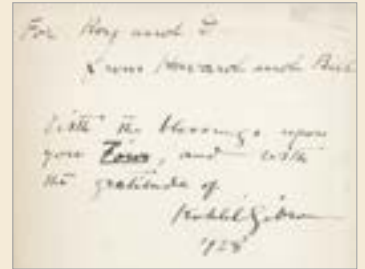 For Roy and
from Howard and
With the blessings upon
you Four, and with
the gratitude of
Kahlil Gibran
1928